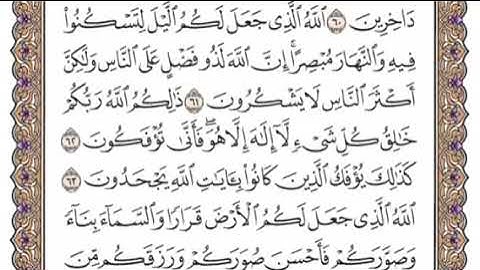 دَاخِرِينَ ٦٠ ٱللَّهُ ٱلَّذِى جَعَلَ لَكُمُ ٱلَّيْلَ لِتَسْكُنُوا۟
فِيهِ وَٱلنَّهَارَ مُبْصِرًا ۚ إِنَّ ٱللَّهَ لَذُو فَضْلٍ عَلَى ٱلنَّاسِ وَلَٰكِنَّ
أَكْثَرَ ٱلنَّاسِ لَا يَشْكُرُونَ ٦١ ذَٰلِكُمُ ٱللَّهُ رَبُّكُمْ
خَٰلِقُ كُلِّ شَىْءٍ لَّآ إِلَٰهَ إِلَّا هُوَ ۖ فَأَنَّىٰ تُؤْفَكُونَ ٦٢
كَذَٰلِكَ يُؤْفَكُ ٱلَّذِينَ كَانُوا۟ بِـَٔايَٰتِ ٱللَّهِ يَجْحَدُونَ ٦٣
ٱللَّهُ ٱلَّذِى جَعَلَ لَكُمُ ٱلْأَرْضَ قَرَارًا وَٱلسَّمَآءَ بِنَآءً
وَصَوَّرَكُمْ فَأَحْسَنَ صُوَرَكُمْ وَرَزَقَكُم مِّنَ